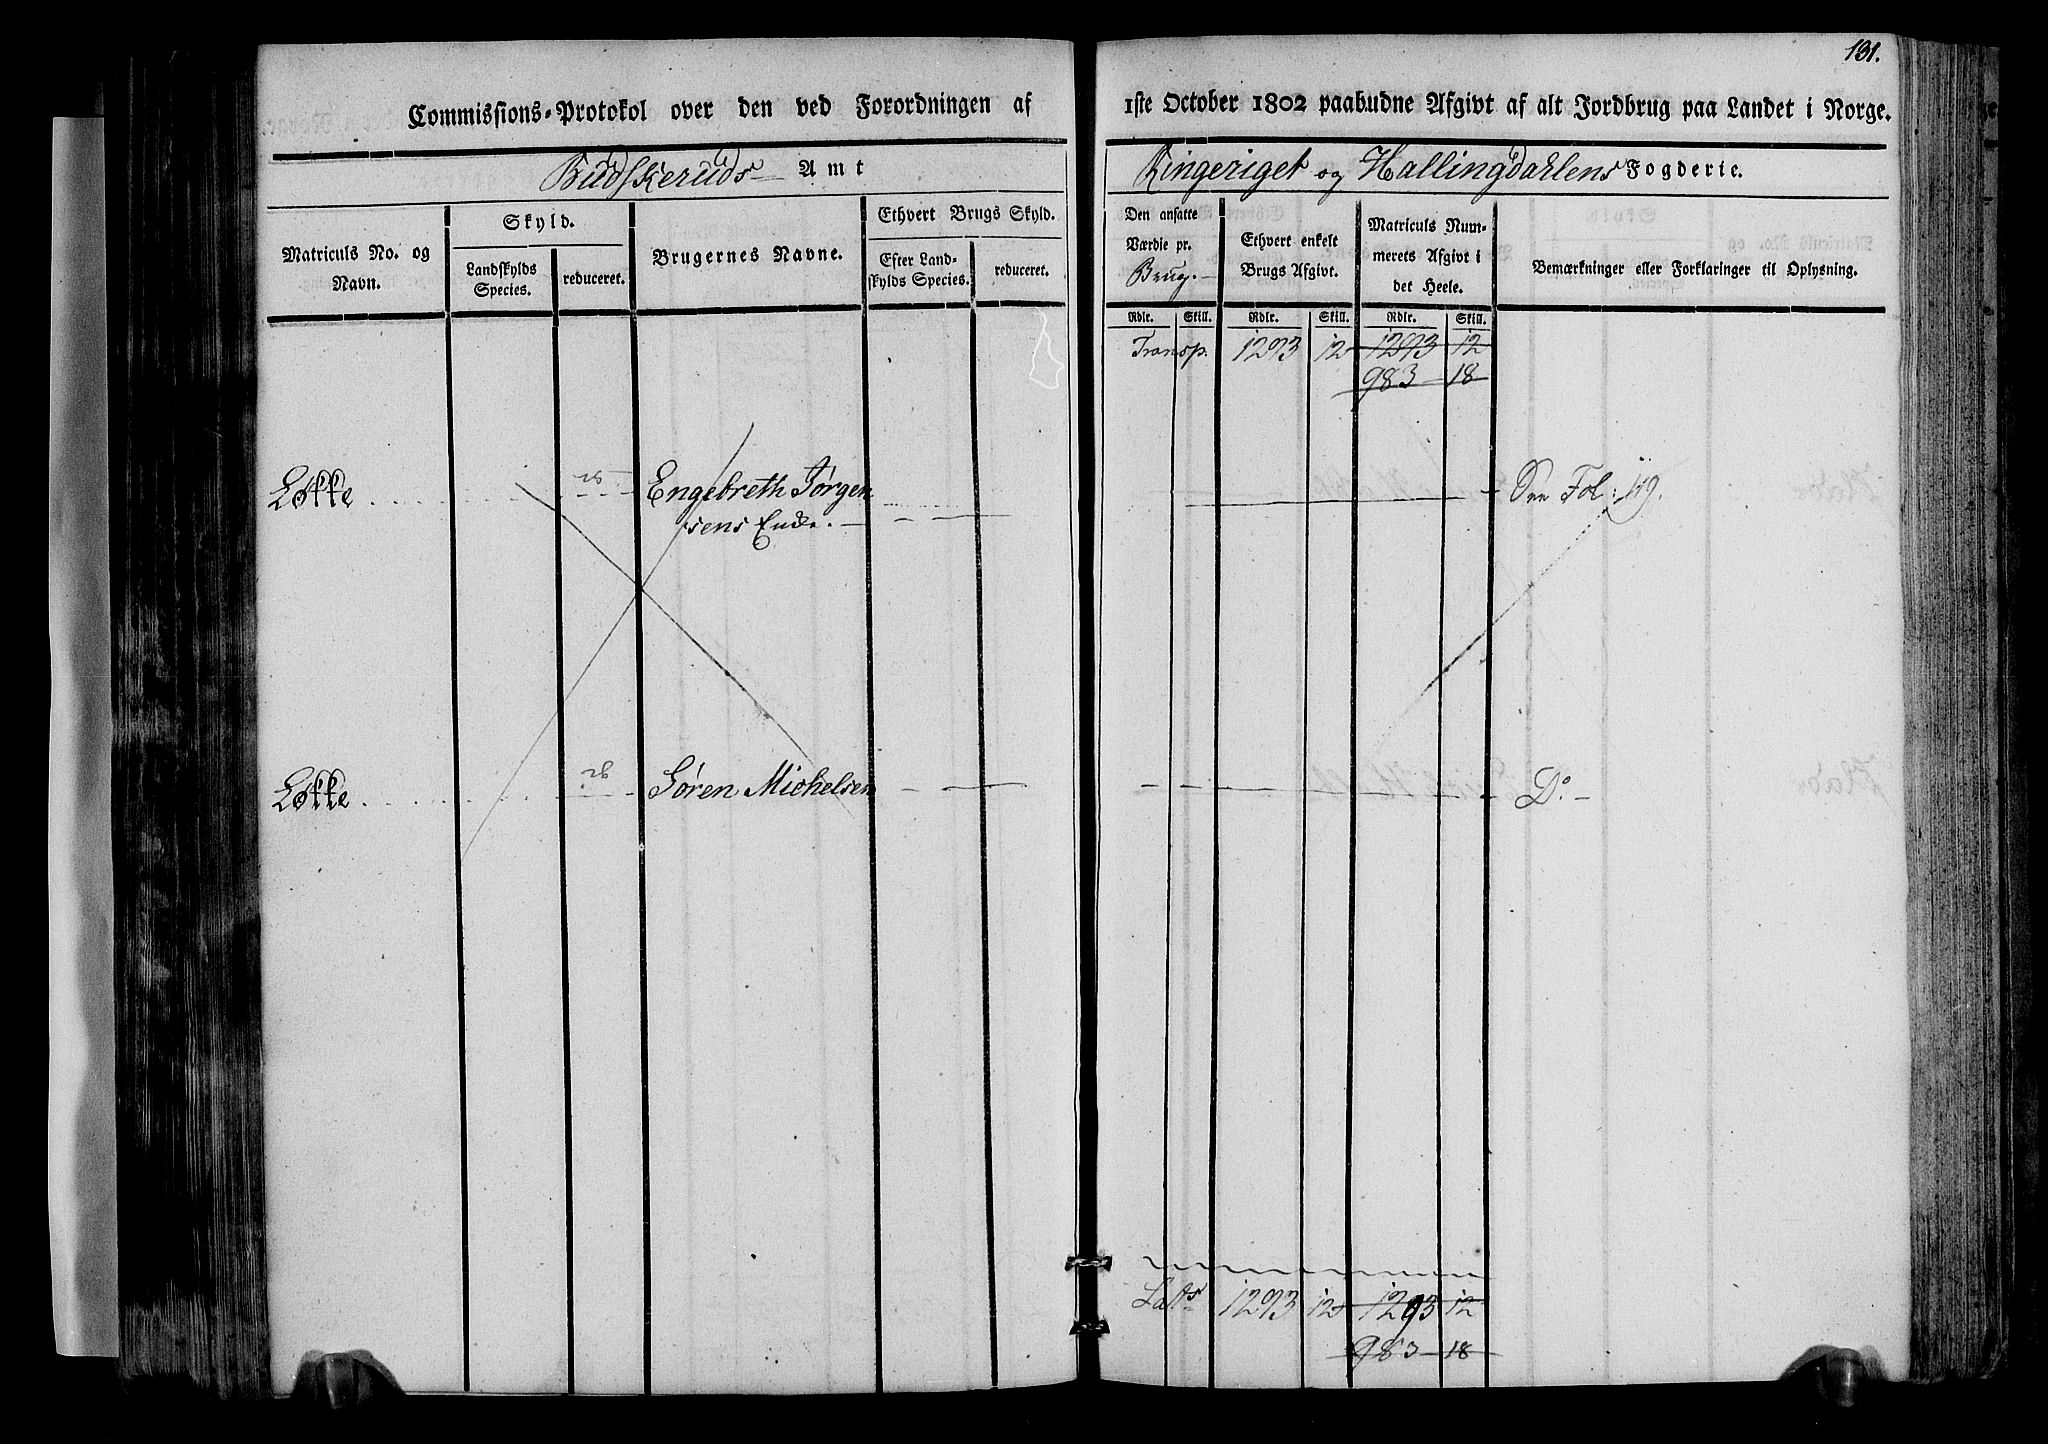 131.
Commissions-Protokol over den ved Forordningen af 1ste October 1802 paabudne Afgivt af alt Jordbrug paa Landet i Norge.
Budskeruds Amt Ringeriget og Hallingdahlens Fogderie.
Matriculs No. og Navn.
Skyld.
Landskylds Species.
reduceret.
Brugernes Navne.
Ethvert Brugs Skyld.
Efter Landskylds Species.
reduceret.
Den ansatte Værdie pr. Brug.
Ethvert enkelt Brugs Afgivt.
Matriculs Nummerets Afgivt i det Heele.
Bemærkninger eller Forklaringer til Oplysning.
Rdlr. Skill. Rdlr. Skill. Rdlr. Skill.
Transp. 1293 12 1293 12
983 18
Løkke Engebreth Jørgen See Fol: 119.
sens Enke.
Løkke Søren Michelsen Do.
Lats 1293 12 1293 12
983 18